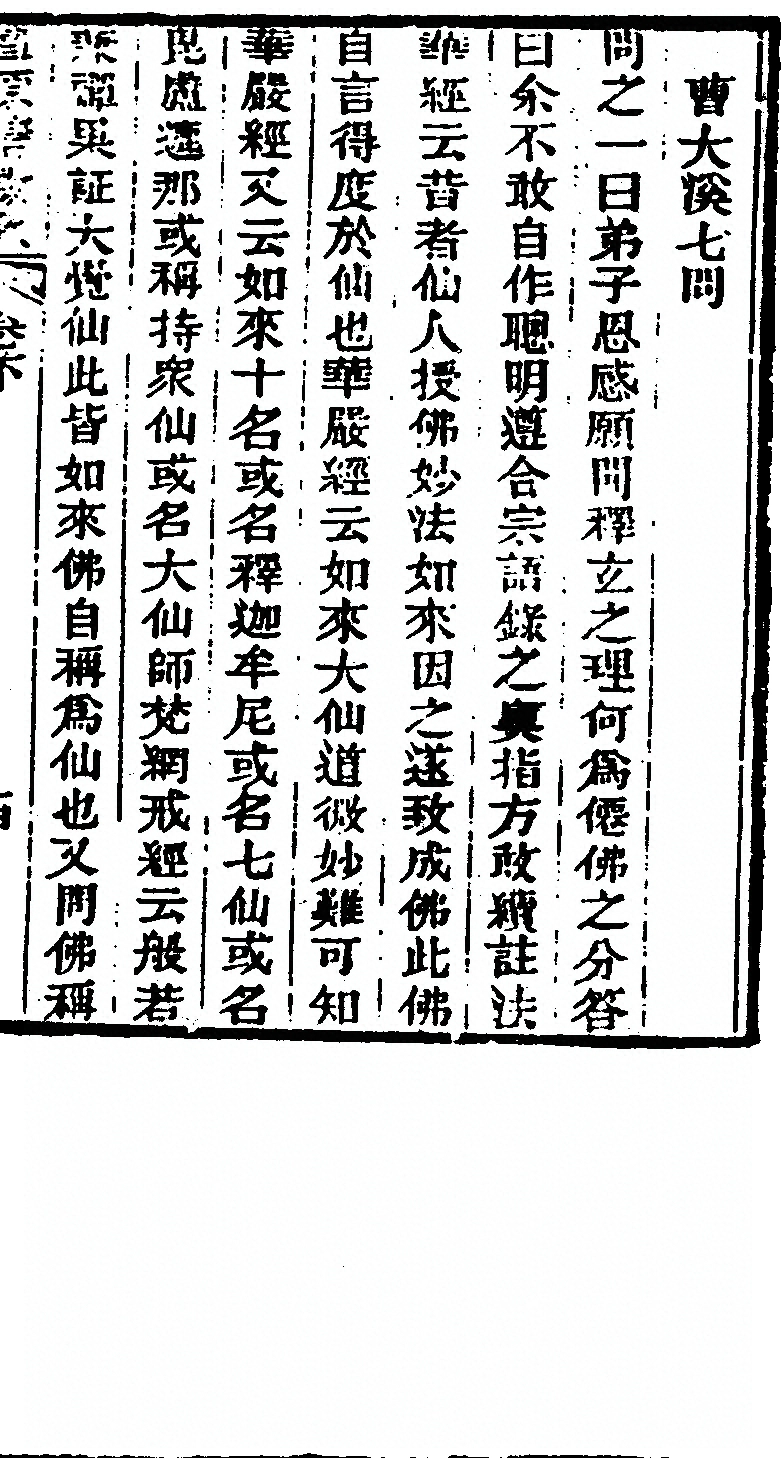 曹大溪七問
問之一曰弟子恩感願問釋玄之理何爲僊佛之分答
曰余不敢自作聰明遵合宗語錄之奧指方敢續註法
華經云昔者仙人授佛妙法如來因之遂致成佛此佛
自言得度於仙也華嚴經云如來大仙道微妙難可知
華嚴經又云如來十名或名釋迦牟尼或名七仙或名
毘盧遮那或稱持衆仙或名大仙師梵網戒經云般若
聚證果証大覺仙此皆如來佛自稱爲仙也又問佛稱